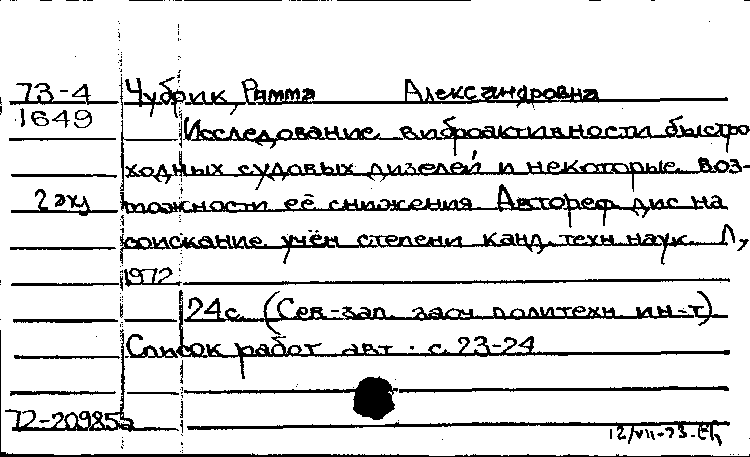 73-4 Чубрик, Римма Александровна
1649
Исследование виброактивности быстро
ходных судовых дизелей и некоторые воз-
2 экз можности её снижения Автореф дис на
соискание учён степени канд. техн наук. Л,
1972
24с. (Сев-зап заоч политехн ин-т)
Список работ авт. с. 23-24
72-20985
12/VII-73.